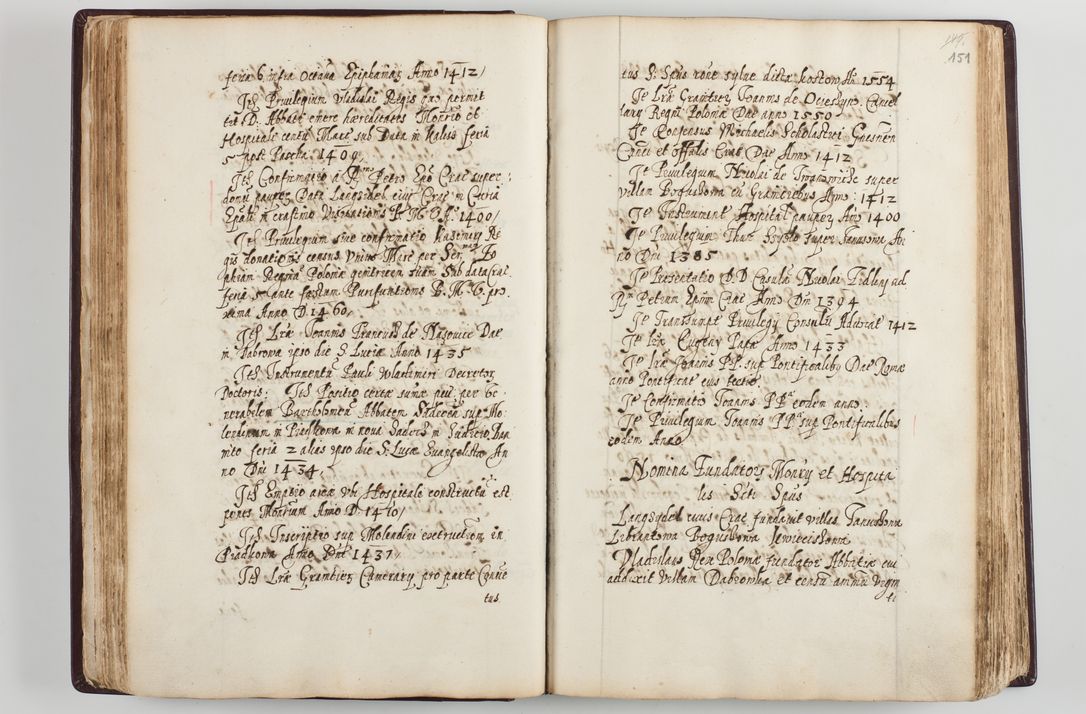 feria 6 infra Octaua Epiphaniæ Anno 1412/
Ite Priuilegium Vladislai Regis pro permit
tu D. Abbati emere hæreditates Monrio et
Hospitale centu Marc sub Data in Kalis feria
5 post Pascha 1409/
Ite Confirmatio a Rmo Petro Epo Crac super
domu paupeȝ Data Langsidel ciuis Crac in Curia
Epali in crastino Visitationis B. M. V. Ao 1400/
Ite Priuilegium siue confirmatio Kasimiri Re
gis donationis census Vnius Marc per Ser. mã So
phiam Reginã Poloniæ genitricem suam Sub data Crac
feria 5 ante festum Purificationis B. M. V. pro
xima Anno D. 1460/
Ite Lrã Joannis Francisci de Mazouice Dae
in Dabrowa ipso die S. Luciæ Anno 1435
Ite Instrumentu Pauli Wlatimiri Decretoȝ
Doctoris: Ite Positio certæ sumæ pecu per Ve
nerabilem Bartholomeu Abbatem Sadecen sup Mo
lendinum in Piadkowa in noua Sadecz in Judicio Ban
nito feria 2 alias ipso die S. Lucæ Euangelistæ An
no Dni 1434.
Ite Emptio areæ vbi Hospitale constructu est
penes Monrium Anno D. 1410/
Ite Inscriptio sup Molendini exctructiom in
Piadkowa Anno Dni 1437/
Ite Lrã Granities Camerarij pro parte Conue
tus
151
tus S. Spus rõne syluæ dictæ kostow An 1554
Ite Lrã Granitieȝ Joannis de Ocieszyno Cancel
larij Regni Poloniæ Dae anno 1550
Ite Consensus Michaelis Scholastici Gnesnen
Canci et offalis Crac Dae Anno 1412
Ite Priuilegium Nicolai de super
villam Boguskowa cu Granitiebus Anno: 1412
Ite Instrument Hospital paupeȝ Ano 1400
Ite Priuilegium super Janusowa An
no Dni 1385
Ite Presentatio D. D. Nicolai ad
Rm Petrum Epum Crac Anno Dni 1394
Ite Transsumpt Priuilegij Consulu Aduocat 1412
Ite Lrã Eugenij Papæ Anno 1433
Ite Lrã Joannis P.P. sup Pontificalibȝ Dae Romæ
anno Pontificat eius tertio.
Ite Confirmatio Joannis P.P. eodem anno.
Ite Priuilegium Joannis P.P. sup Pontificalibus
eodem Anno
Nomina Fundatoȝ Monrij et Hospita
lis Scti Spus
Langsydel ciuis Crac fundauit villas Januskowa
Librantowa Boguskowa
Vladislaus Rex Poloniæ fundator Abbatiæ cui
adduxit Villam Dabrowka et censu annuu Vigin
ti